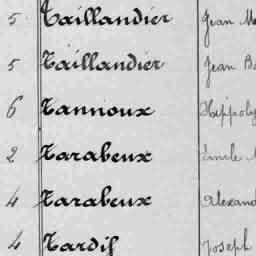 5 Taillandier Jean
5 Taillandier Jean
6 Tannoux Hippoly
2 Tarabeux Émile
4 Tarabeux Alexand
4 Tardif Joseph